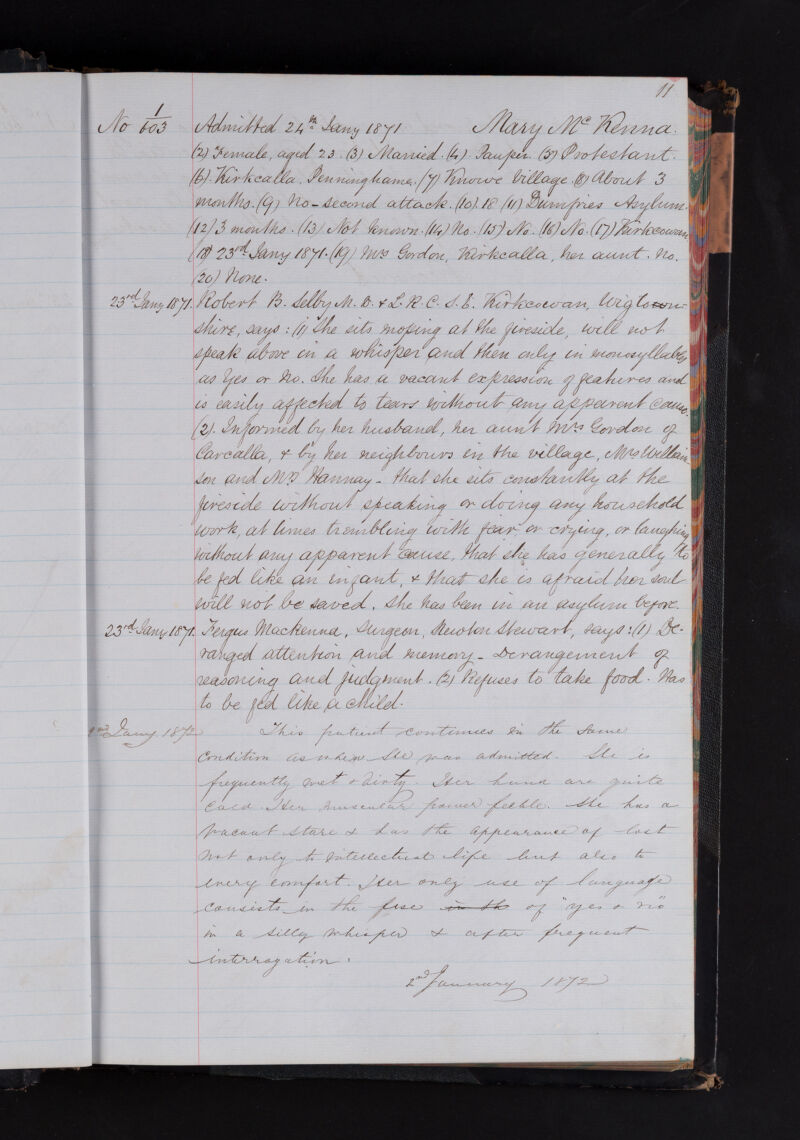 11
No 1/603 Admitted 24th Jany 1871 Mary Mc Kenna.
(2) Female, aged 23. (3) Married. (4). Pauper. (5) Protestant.
(6). Kirkcalla. Penninghame. (7) Knowe Village. (8) About 3
months. (9) No - second attack. (10). 18. (11) Dumfries Asylum.
(12) 3 months. (13) Not known. (14) No. (15) No. (16) No. (17) Kirkcowan
(18) 23rd Jany 1871. (19) Mrs Gordon, Kirkcalla, her aunt. No.
(20) None.
23rd Jany 1871. Robert B. Selby M. D. & L. R. C. S. E. Kirkcowan, Wigtown-
shire, says: (1) She sits moping at the fireside, will not
speak above in a whisper and then only in monosyllables
as Yes or No. She has a vacant expression of features and
is easily affected to tears without any apparent cause.
(2). Informed by her husband, her aunt Mrs Gordon of
Carcalla, & by her neighbours in the village, Mrs William-
son and Mrs Hannay - that she sits constantly at the
fireside without speaking or doing any household
work, at times trembling with fear or crying, or laughing
without any apparent cause, that she has generally to
be fed like an infant, & that she is afraid her soul
will not be saved. She has been in an asylum before.
23rd Jany 1871. Fergus Mackenna, Surgeon, Newton Stewart, says: (1) De-
ranged attention and memory - Derangement of
reasoning and judgment. (2) Refuses to take food. Has
to be fed like a child.
2nd Jany. 1872 This patient continues in the same
condition as when she was admitted. She is
frequently wet & dirty. Her are quite
cold. Her muscular power feeble. She has a
vacant stare & has the appearance of lost
not only to intellectual life but also to
every comfort. Her only use of language
consists in the in the of "yes & no"
in a silly whisper & after frequent
interrogation.
2nd January 1872